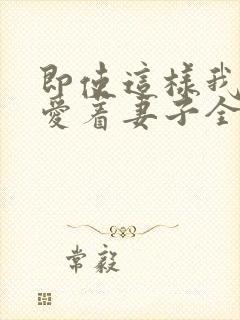 即使這樣我
愛着妻子全
常毅